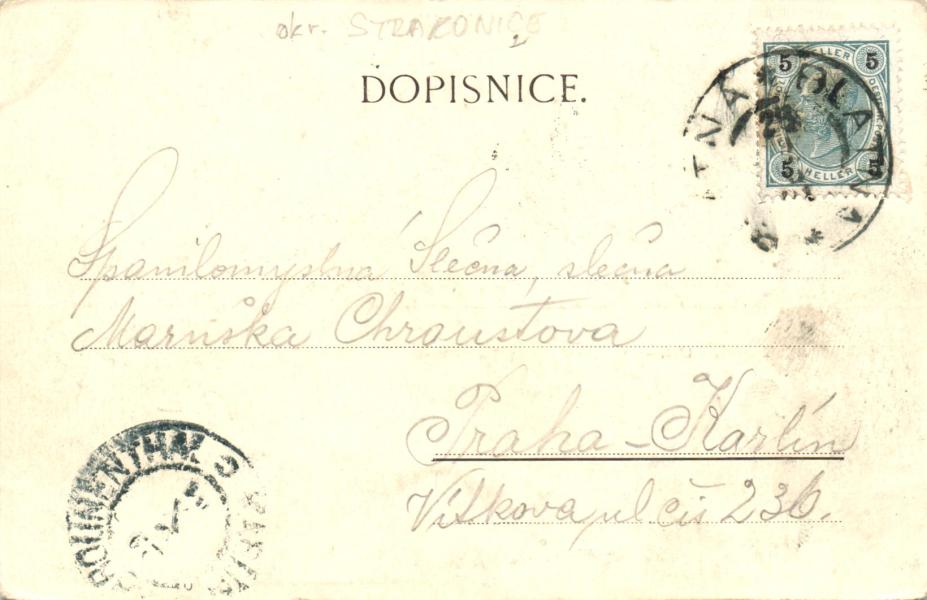 okr. STRAKONICE
DOPISNICE.
5 HELLER 5
5 HELLER 5
BLATNÁ * BLATNA *
Spanilomyslná Slečna, slečna
Maruška Chroustova
Praha-Karlín
Vítkova ul čís 236.
CAROLINENTHAL